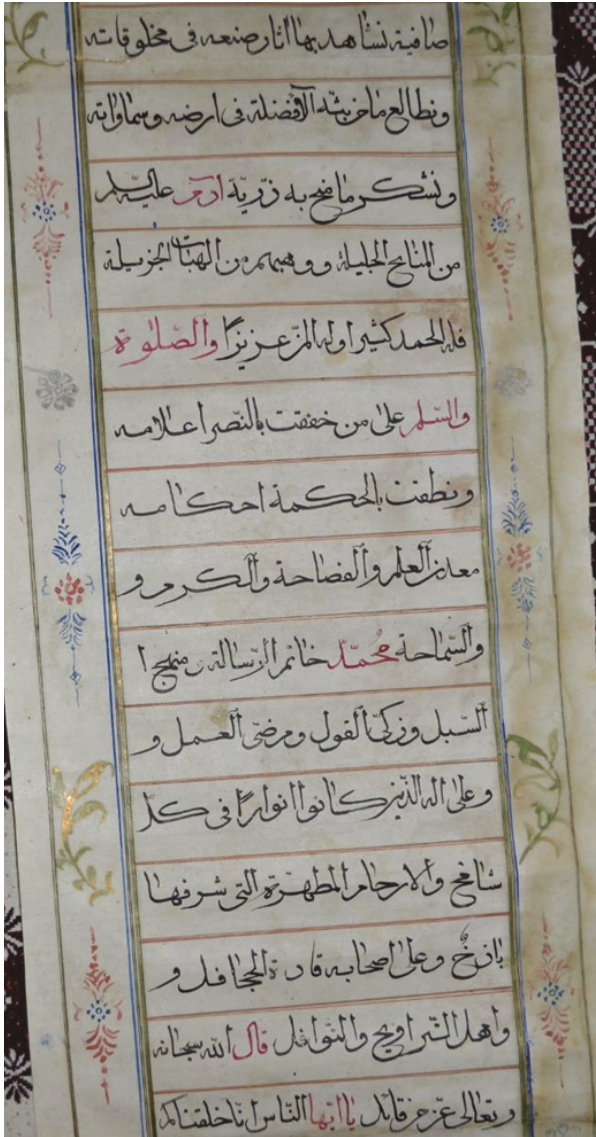 صافية نشاهد بها اثار صنعه في مخلوقاته
ونطالع ما خر بثه الافضلة في ارضه وسماواته
ونشكر ما منح به ذرّية ادم عليه السلم
من المنايح الجليلة ووهبهم من الهبات الجزيلة
فله الحمد كثيرا وله المنّ عزيزًا والصّلوة
والسّلم على من خفقت بالنّصر اعلامه
ونطقت بالحكمة احكامه
معدن العلم والفصاحة والكرم و
والسّماحة محُمّد خاتم الرّسالة ومنهج ا
السّبل وزكيّ القول ومرضيّ العمل و
وعلى اله الذّين كانوا انوارًا في كلّ
شامخ والارحام المطهّرة التي شرفها
باذخٌ وعلى اصحابه قادة الجحافل و
واهل التّراويح والنّوافل قال الله سبحانه
وتعالى عزّ من قائل يا ايّها النّاس انّا خلقناكم